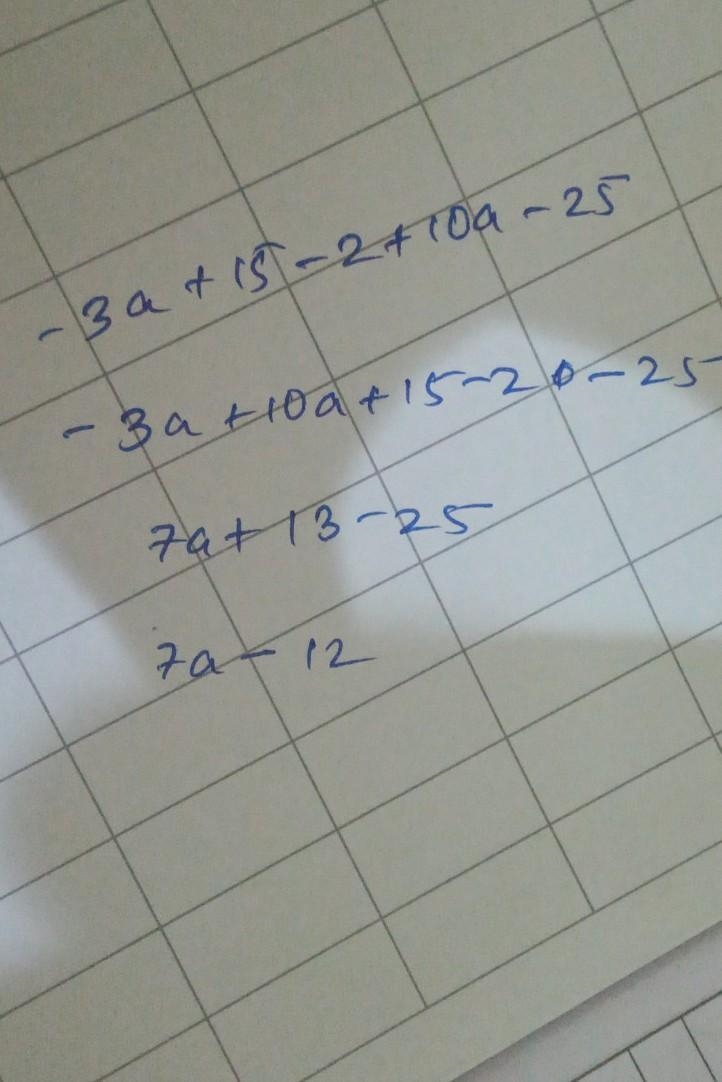 -3a+15-2+10a-25
-3a+10a+15-2-25
7a+13-25
7a-12